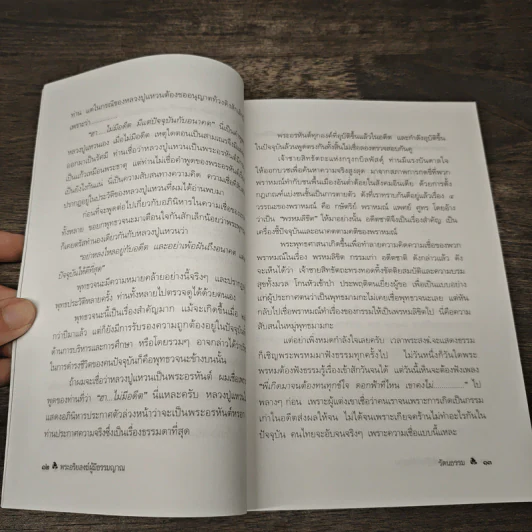 ท่าน แต่ในกรณีของหลวงปู่แหวนต้องขออนุญาตท้วงติงสัก
เพราะว่า
"ฮา...ไม่มีอดีต มีแต่ปัจจุบันกับอนาคต" นี่เป็นคำพูด
หลวงปู่แหวนเอง เมื่อไม่มีอดีต เหตุใดตอนเป็นสามเณรจึง
ออกมาเป็นรัศมี ท่านเชื่อว่าหลวงปู่แหวนเป็นพระอรหันต์
เป็นแก้วเหมือนพระธาตุ แต่ท่านไม่เชื่อคำพูดของพระอรหันต์
เป็นยังไงกันแน่ นี่เป็นความสับสนทางความคิด ความเชื่อที่
ปรากฏอยู่ในประวัติของหลวงปู่แหวนที่ผมได้อ่านพบมา
ก่อนที่จะพูดต่อไปเกี่ยวกับอภินิหารในความเชื่อของ
ทั้งหลาย ขอยกพุทธวจนะมาเตือนใจกันสักเล็กน้อยว่าพระพุทธ
ก็เคยตรัสทำนองเดียวกันกับหลวงปู่แหวนว่า
"อย่าหลงใหลอยู่กับอดีต และอย่าเพ้อฝันถึงอนาคต
ปัจจุบันให้ดีที่สุด"
พุทธวจนะมีความหมายคล้ายอย่างนี้จริงๆ และปรากฏ
พุทธประวัติหลายครั้ง ท่านทั้งหลายไปตรวจดูได้ด้วยตนเอง
พุทธวจนะนี้เป็นเรื่องสำคัญมาก แม้จะเกิดขึ้นเมื่อ
กว่าปีมาแล้ว แต่ก็ยังมีการรับรองความถูกต้องอยู่ในปัจจุบัน
ด้านการบริหารและการศึกษา หรือโดยรวมๆ อาจกล่าวได้ว่า
ในการดำรงชีวิตของคนปัจจุบันก็คือพุทธวจนะข้างบนนั้น
ถ้าผมจะเชื่อว่าหลวงปู่แหวนเป็นพระอรหันต์ ผมเชื่อ
พูดของท่านที่ว่า "ฮา...ไม่มีอดีต" นี่แหละครับ หลวงปู่แหวน
แสดงอภินิหารประกาศตัวล่วงหน้าว่าจะเป็นพระอรหันต์
ท่านประกาศความจริงซึ่งเป็นเรื่องธรรมดาที่สุด
๑๒ พระอริยสงฆ์ผู้มีธรรมญาณ
พระอรหันต์ทุกองค์ที่อุบัติขึ้นแล้วในอดีต และกำลังอุบัติขึ้น
ในปัจจุบันล้วนพูดตรงกันทั้งสิ้นไม่เชื่อลองตรวจสอบกันดู
เจ้าชายสิทธัตถะแห่งกรุงกบิลพัสดุ์ ท่านมีแรงบันดาลใจ
ให้ออกบวชเพื่อค้นหาความจริงสูงสุด มาจากสภาพการกดขี่ที่พวก
พราหมณ์ทำกับชนพื้นเมืองอันต่ำต้อยในสังคมอินเดีย ด้วยการตั้ง
กฎเกณฑ์แบ่งชนชั้นเป็นการตายตัว ดังที่เราทราบกันดีอยู่แล้วเรื่อง ๔
วรรณะของพราหมณ์ คือ กษัตริย์ พราหมณ์ แพศย์ ศูทร โดยอ้าง
ว่าเป็น "พรหมลิขิต" ให้มาอย่างนั้น อดีตชาติจึงเป็นเรื่องสำคัญ เป็น
เครื่องชี้ปัจจุบันและอนาคตตามคติของพราหมณ์
พระพุทธศาสนาเกิดขึ้นเพื่อทำลายความคิดความเชื่อของพวก
พราหมณ์ในเรื่อง พรหมลิขิต กรรมเก่า อดีตชาติ ดังกล่าวแล้ว ดัง
จะเห็นได้ว่า เจ้าชายสิทธัตถะทรงทอดทิ้งขัตติยสมบัติและความบรม
สุขทั้งมวล โกนหัวเข้าป่า ประพฤติตนเยี่ยงผู้ขอ เพื่อเป็นแบบอย่าง
แก่ผู้ประกาศตนว่าเป็นพุทธมามกะไม่เคยเชื่อพุทธวจนะเลย แต่หัน
กลับไปเชื่อพราหมณ์ทำเรื่องของกรรมให้เป็นพรหมลิขิตไป นี่คือความ
สับสนในหมู่พุทธมามกะ
แต่อย่าเพิ่งหมดกำลังใจเลยครับ เวลาพระสงฆ์จะแสดงธรรม
ก็เชิญพระพรหมมาฟังธรรมทุกครั้งไป ไม่วันหนึ่งก็วันใดพระ
พรหมต้องฟังธรรมรู้เรื่องเข้าสักวันจนได้ แต่วันนี้เห็นจะต้องฟังเพลง
"พี่เกิดมาจนต้องทนทุกข์ใจ ตกฟ้าที่ไหน เขาคงไม่............" ไป
พลางๆ ก่อน เพราะผู้แต่งเขาเชื่อว่าคนเราจนเพราะการเกิดเป็นกรรม
เก่าในอดีตส่งผลให้จน ไม่ได้จนเพราะเกียจคร้านไม่ทำอะไรกันใน
ปัจจุบัน คนไทยจะอับจนจริงๆ เพราะความเชื่อแบบนี้แหละ
รัตนธรรม ๑๓